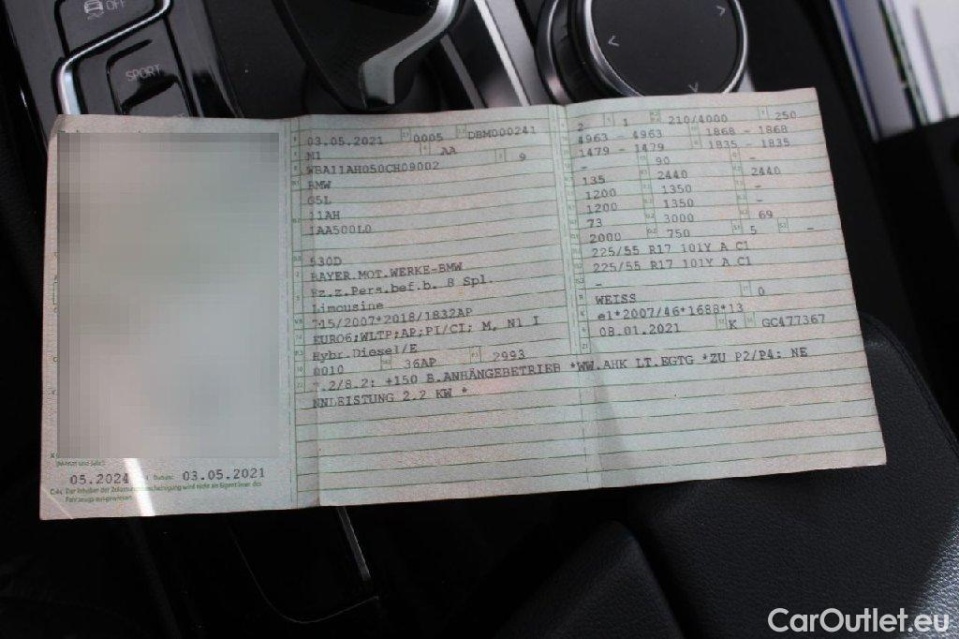 OFF
SPORT
03.05.2021 0005 DBM000241
M1 AA
WBA11AH050CH09002 9
BMW
G5L
11AH
1AA500L0
530D
BAYER.MOT.WERKE-BMW
Fz.z.Pers.bef.b. 8 Spl.
Limousine
715/2007*2018/1832AP
EURO6;WLTP;AP;PI/CI; M, N1 I
Hybr.Diesel/E
0010 36AP 2993
7.2/8.2: +150 B.ANHÄNGEBETRIEB *WW.AHK LT.EGTG *ZU P2/P4: NE
NNLEISTUNG 2.2 KW *
2 1 210/4000 250
4963 - 4963 1868 - 1868
1479 - 1479 1835 - 1835
- 90 -
135 2440 2440
1200 1350 -
1200 1350 -
73 3000 69
2000 750 5 -
225/55 R17 101Y A C1
225/55 R17 101Y A C1
-
WEISS 0
e1*2007/46*1688*13
08.01.2021 K GC477367
05.2024 03.05.2021
C4c Der Inhaber der Zulassungsbescheinigung wird nicht als Eigentümer des
Fahrzeugs ausgewiesen.
CarOutlet.eu